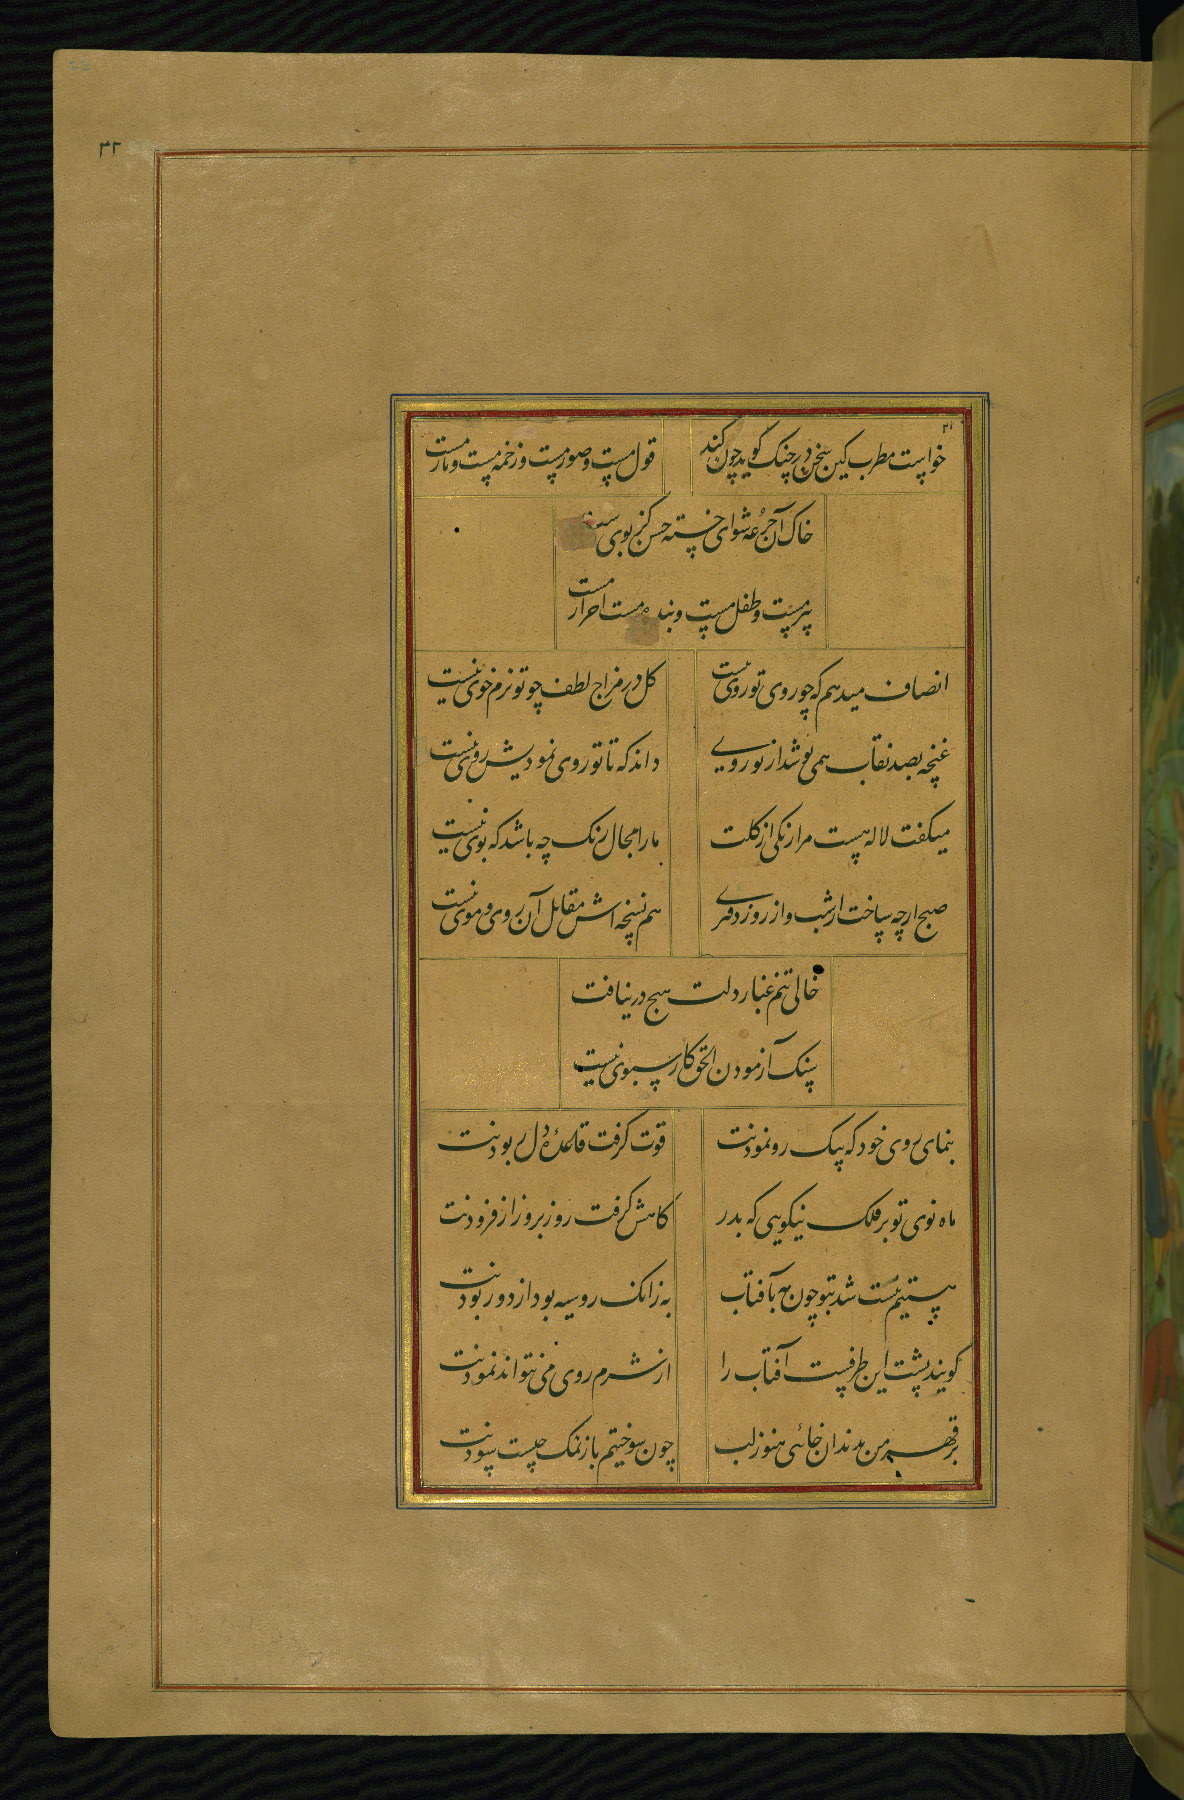 ۳۲
۳۱
خواست مطرب کین سخن در چنک کوید چون کند قول مست و صور مست و زخمه مست و تار مست
خاک آن جرعه شو ای خسته حسن کز بوی
پیر مست و طفل مست و بنده مست احرار مست
انصاف میدهم که چو روی تو روی نیست کل در مزاج لطف چو تو نرم خوی نیست
غنچه بصد نقاب همی پوشد از تو روی داند که تا تو روی نمودیش روی نیست
میکفت لاله هست مرا رنکی از کلت ما را مجال رنک چه باشد که بوی نیست
صبح ارچه ساخت از شب و از روز دفتری هم نسخه اش مقابل آن روی و موی نیست
خالی تنم غبار دلت هیچ در نیافت
سنک آزمودن الحق کار سبوی نیست
بنمای روی خود که رو نمودنت قوت کرفت قاعدهٔ دل ربودنت
ماه نوی تو بر فلک نیکویی که بدر کاهش کرفت روز بروز از فزودنت
هستیم نیست شد بتو چون مه بآفتاب به زانک روسیه بود از دور بودنت
کویند پشت این طرفست آفتاب را از شرم روی می نتواند نمودنت
بر قهر من بدندان خائی هنوز لب چون سوختیم باز نمک چیست سودنت